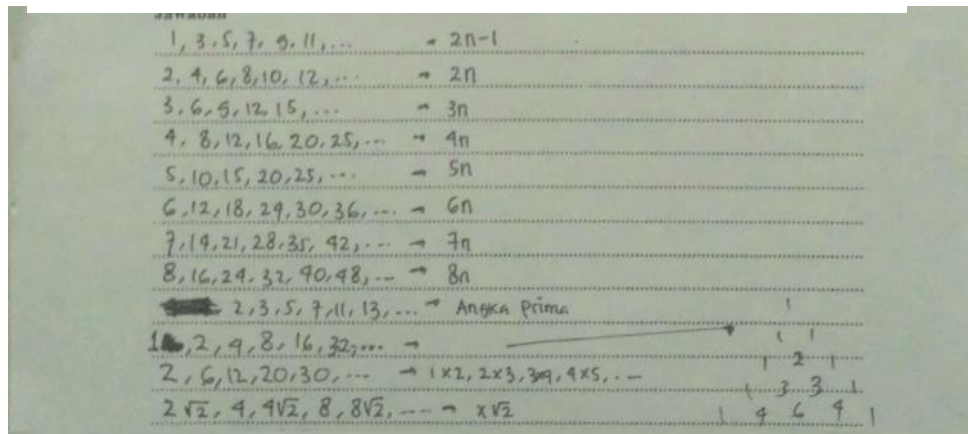 Jawaban
1, 3, 5, 7, 9, 11, ... → 2n-1
2, 4, 6, 8, 10, 12, ... → 2n
3, 6, 9, 12, 15, ... → 3n
4, 8, 12, 16, 20, 25, ... → 4n
5, 10, 15, 20, 25, ... → 5n
6, 12, 18, 24, 30, 36, ... → 6n
7, 14, 21, 28, 35, 42, ... → 7n
8, 16, 24, 32, 40, 48, ... → 8n
2, 3, 5, 7, 11, 13, ... → Angka Prima
1, 2, 4, 8, 16, 32, ... →
2, 6, 12, 20, 30, ... → 1×2, 2×3, 3×4, 4×5, ...
2√2, 4, 4√2, 8, 8√2, ... → ×√2
1
1 1
1 2 1
1 3 3 1
1 4 6 4 1